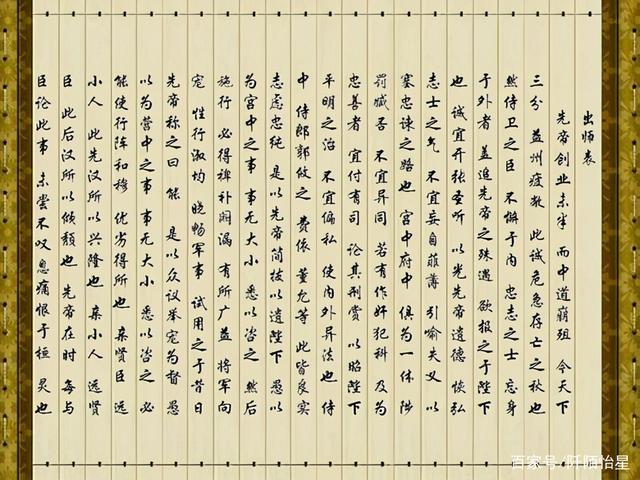 出师表
先帝创业未半 而中道崩殂 今天下
三分 益州疲敝 此诚危急存亡之秋也
然侍卫之臣 不懈于内 忠志之士 忘身
于外者 盖追先帝之殊遇 欲报之于陛下
也 诚宜开张圣听 以光先帝遗德 恢弘
志士之气 不宜妄自菲薄 引喻失义 以
塞忠谏之路也 宫中府中 俱为一体 陟
罚臧否 不宜异同 若有作奸犯科 及为
忠善者 宜付有司 论其刑赏 以昭陛下
平明之治 不宜偏私 使内外异法也 侍
中 侍郎郭攸之 费祎 董允等 此皆良实
志虑忠纯 是以先帝简拔以遗陛下 愚以
为宫中之事 事无大小 悉以咨之 然后
施行 必得裨补阙漏 有所广益 将军向
宠 性行淑均 晓畅军事 试用之于昔日
先帝称之曰 能 是以众议举宠为督 愚
以为营中之事 事无大小 悉以咨之 必
能使行阵和穆 优劣得所也 亲贤臣 远
小人 此先汉所以兴隆也 亲小人 远贤
臣 此后汉所以倾颓也 先帝在时 每与
臣论此事 未尝不叹息痛恨于桓 灵也
百家号/阡陌怡星